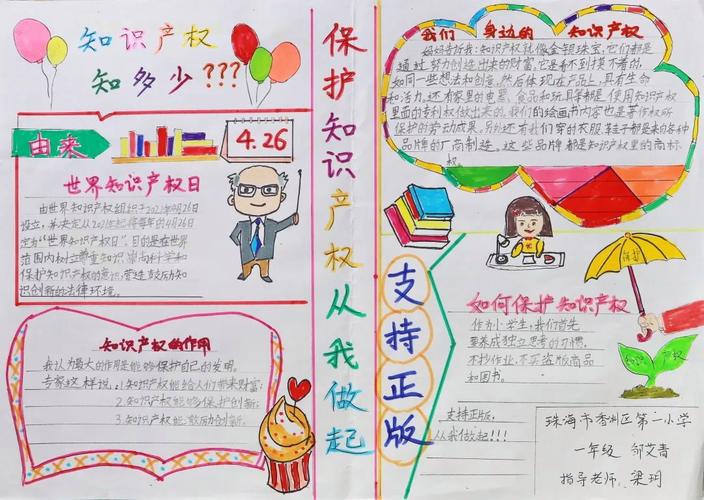 知识产权
知多少???
由来
4.26
世界知识产权日
由世界知识产权组织于2021年4月26日
设立,并决定从2021年起将每年的4月26日
定为“世界知识产权日”。目的是在世
界范围内树立尊重知识,崇尚科学和
保护知识产权的意识,营造鼓励知
识创新的法律环境。
知识产权的作用
我认为最大的作用是能够保护自己的发明。
专家这样说:1.知识产权能给人们带来财富;
2.知识产权能够保护创新;
3.知识产权能鼓励创新。
保护知识产权从我做起
我们身边的知识产权
妈妈告诉我:知识产权就像金银珠宝,它们都是
通过努力创造出来的财富,它是看不到摸不着的,
如同一些想法和创意,然后体现在产品上,具有生命
和活力。还有家里的电器、食品和玩具等都是使用知识产权
里面的专利权做出来的。我们的绘画作内容也是著作权所
保护的劳动成果。另外还有我们穿的衣服、鞋子都是来自各种
品牌的厂商制造。这些品牌都是知识产权里的商标
权。
支持正版
如何保护知识产权
作为小学生,我们首先
要养成独立思考的习惯,
不抄作业,不买盗版商品
和图书。
支持正版,
从我做起!!!
知识
产权
珠海市香洲区第一小学
一年级 邹艾青
指导老师 梁玥